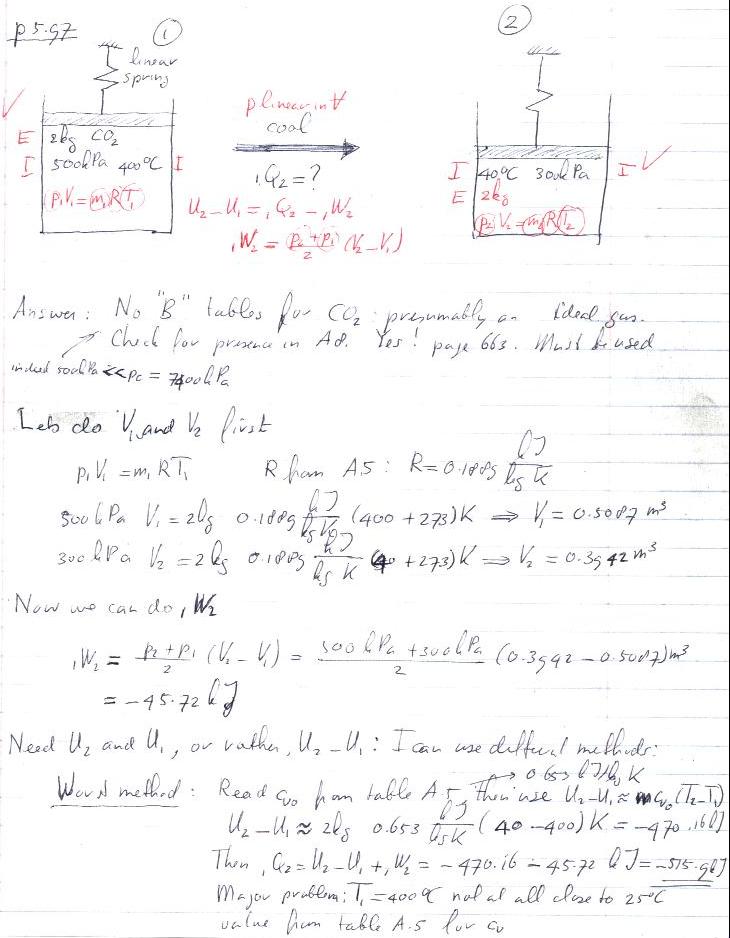 p 5.97
①
②
linear
spring
p linear in V
cool
E 2kg CO₂
I 500kPa 400°C I
p₁V₁=m₁RT₁
₁Q₂=?
U₂-U₁=₁Q₂-₁W₂
₁W₂=(p₂+p₁)/2 (V₂-V₁)
I 40°C 300kPa I
E 2kg
p₂V₂=m₂RT₂
Answer: No "B" tables for CO₂: presumably an ideal gas.
Check for presence in A8. Yes! page 663. Must be used
indeed 500kPa << pc = 7400kPa
Lets do V₁ and V₂ first
p₁V₁=m₁RT₁ R from A.5: R=0.1889 kJ/kg K
500kPa V₁=2kg 0.1889 kJ/kg K (400+273)K ⇒ V₁=0.5087 m³
300kPa V₂=2kg 0.1889 kJ/kg K (40+273)K ⇒ V₂=0.3942 m³
Now we can do ₁W₂
₁W₂ = (p₂+p₁)/2 (V₂-V₁) = (500kPa+300kPa)/2 (0.3942-0.5087)m³
= -45.72 kJ
Need U₂ and U₁, or rather, U₂-U₁: I can use different methods:
→ 0.653 kJ/kg K
Worst method: Read cv0 from table A.5, then use U₂-U₁≈mcv0(T₂-T₁)
U₂-U₁≈2kg 0.653 kJ/kg K (40-400)K=-470.16kJ
Then ₁Q₂=U₂-U₁+₁W₂=-470.16-45.72 kJ=-515.9kJ
Major problem: T₁=400°C not at all close to 25°C
value from table A.5 for cv